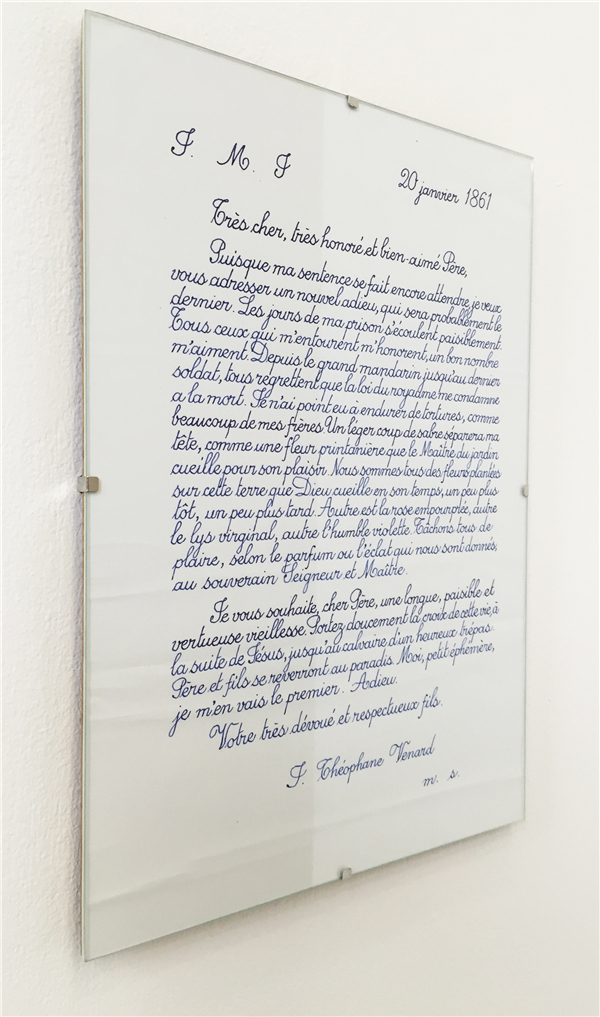 J. M. J
20 janvier 1861
Très cher, très honoré et bien-aimé Père,
Puisque ma sentence se fait encore attendre, je veux
vous adresser un nouvel adieu, qui sera probablement le
dernier. Les jours de ma prison s'écoulent paisiblement.
Tous ceux qui m'entourent m'honorent, un bon nombre
m'aiment. Depuis le grand mandarin jusqu'au dernier
soldat, tous regrettent que la loi du royaume me condamne
a la mort. Je n'ai point eu à endurer de tortures, comme
beaucoup de mes frères. Un léger coup de sabre séparera ma
tête, comme une fleur printanière que le Maître du jardin
cueille pour son plaisir. Nous sommes tous des fleurs plantées
sur cette terre que Dieu cueille en son temps, un peu plus
tôt, un peu plus tard. Autre est la rose empourprée, autre
le lys virginal, autre l'humble violette. Tâchons tous de
plaire, selon le parfum ou l'éclat qui nous sont donnés,
au souverain Seigneur et Maître.
Je vous souhaite, cher Père, une longue, paisible et
vertueuse vieillesse. Portez doucement la croix de cette vie, à
la suite de Jésus, jusqu'au calvaire d'un heureux trépas.
Père et fils se reverront au paradis. Moi, petit éphémère,
je m'en vais le premier. Adieu.
Votre très dévoué et respectueux fils.
J. Théophane Venard
m. s.